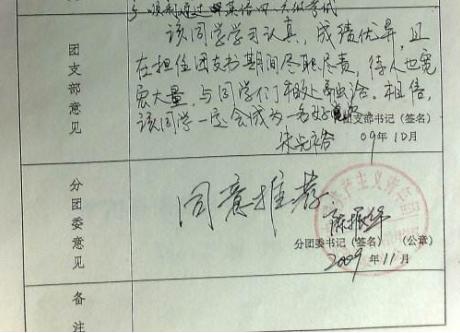 顺利通过英语四六级考试
该同学学习认真，成绩优异，且
在担任团支书期间尽职尽责，待人也宽
宏大量，与同学们相处融洽。相信，
该同学一定会成为一名好党员
团支部意见
团支部书记（签名）
09年10月
同意推荐
分团委意见
分团委书记（签名）（公章）
2009年11月
备注